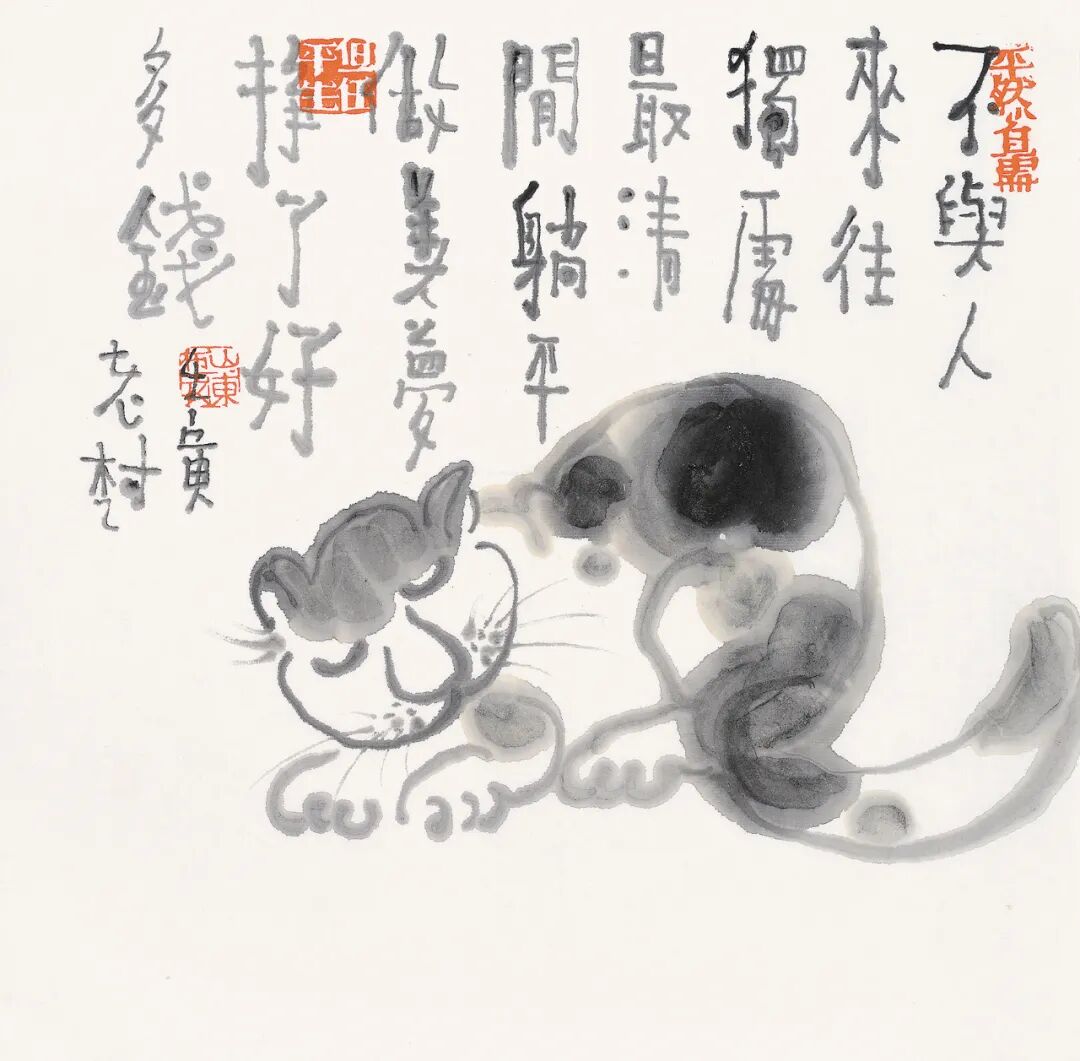 不與人
來往
獨處
最清
閒躺平
做美夢
掙了好
多錢
壬寅
老
山東